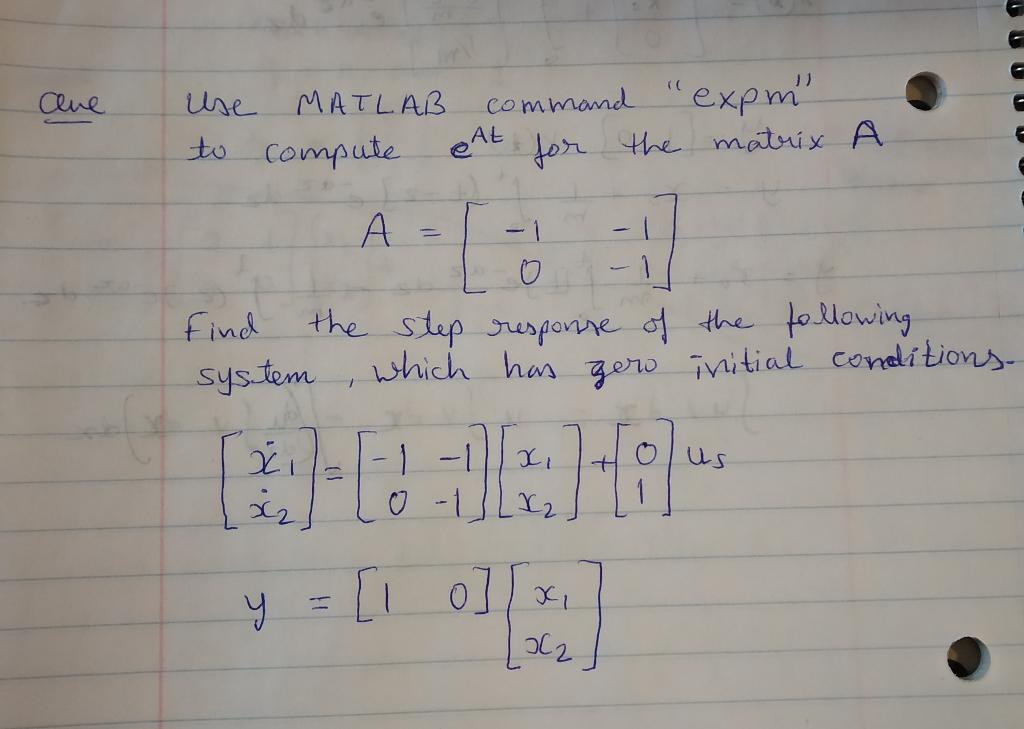 Que Use MATLAB command "expm"
to compute e^At for the matrix A
A = [ -1 -1
0 -1 ]
Find the step response of the following
system, which has zero initial conditions.
[ ẋ1 ] = [ -1 -1 ] [ x1 ] + [ 0 ] us
[ ẋ2 ] [ 0 -1 ] [ x2 ] [ 1 ]
y = [ 1 0 ] [ x1
x2 ]